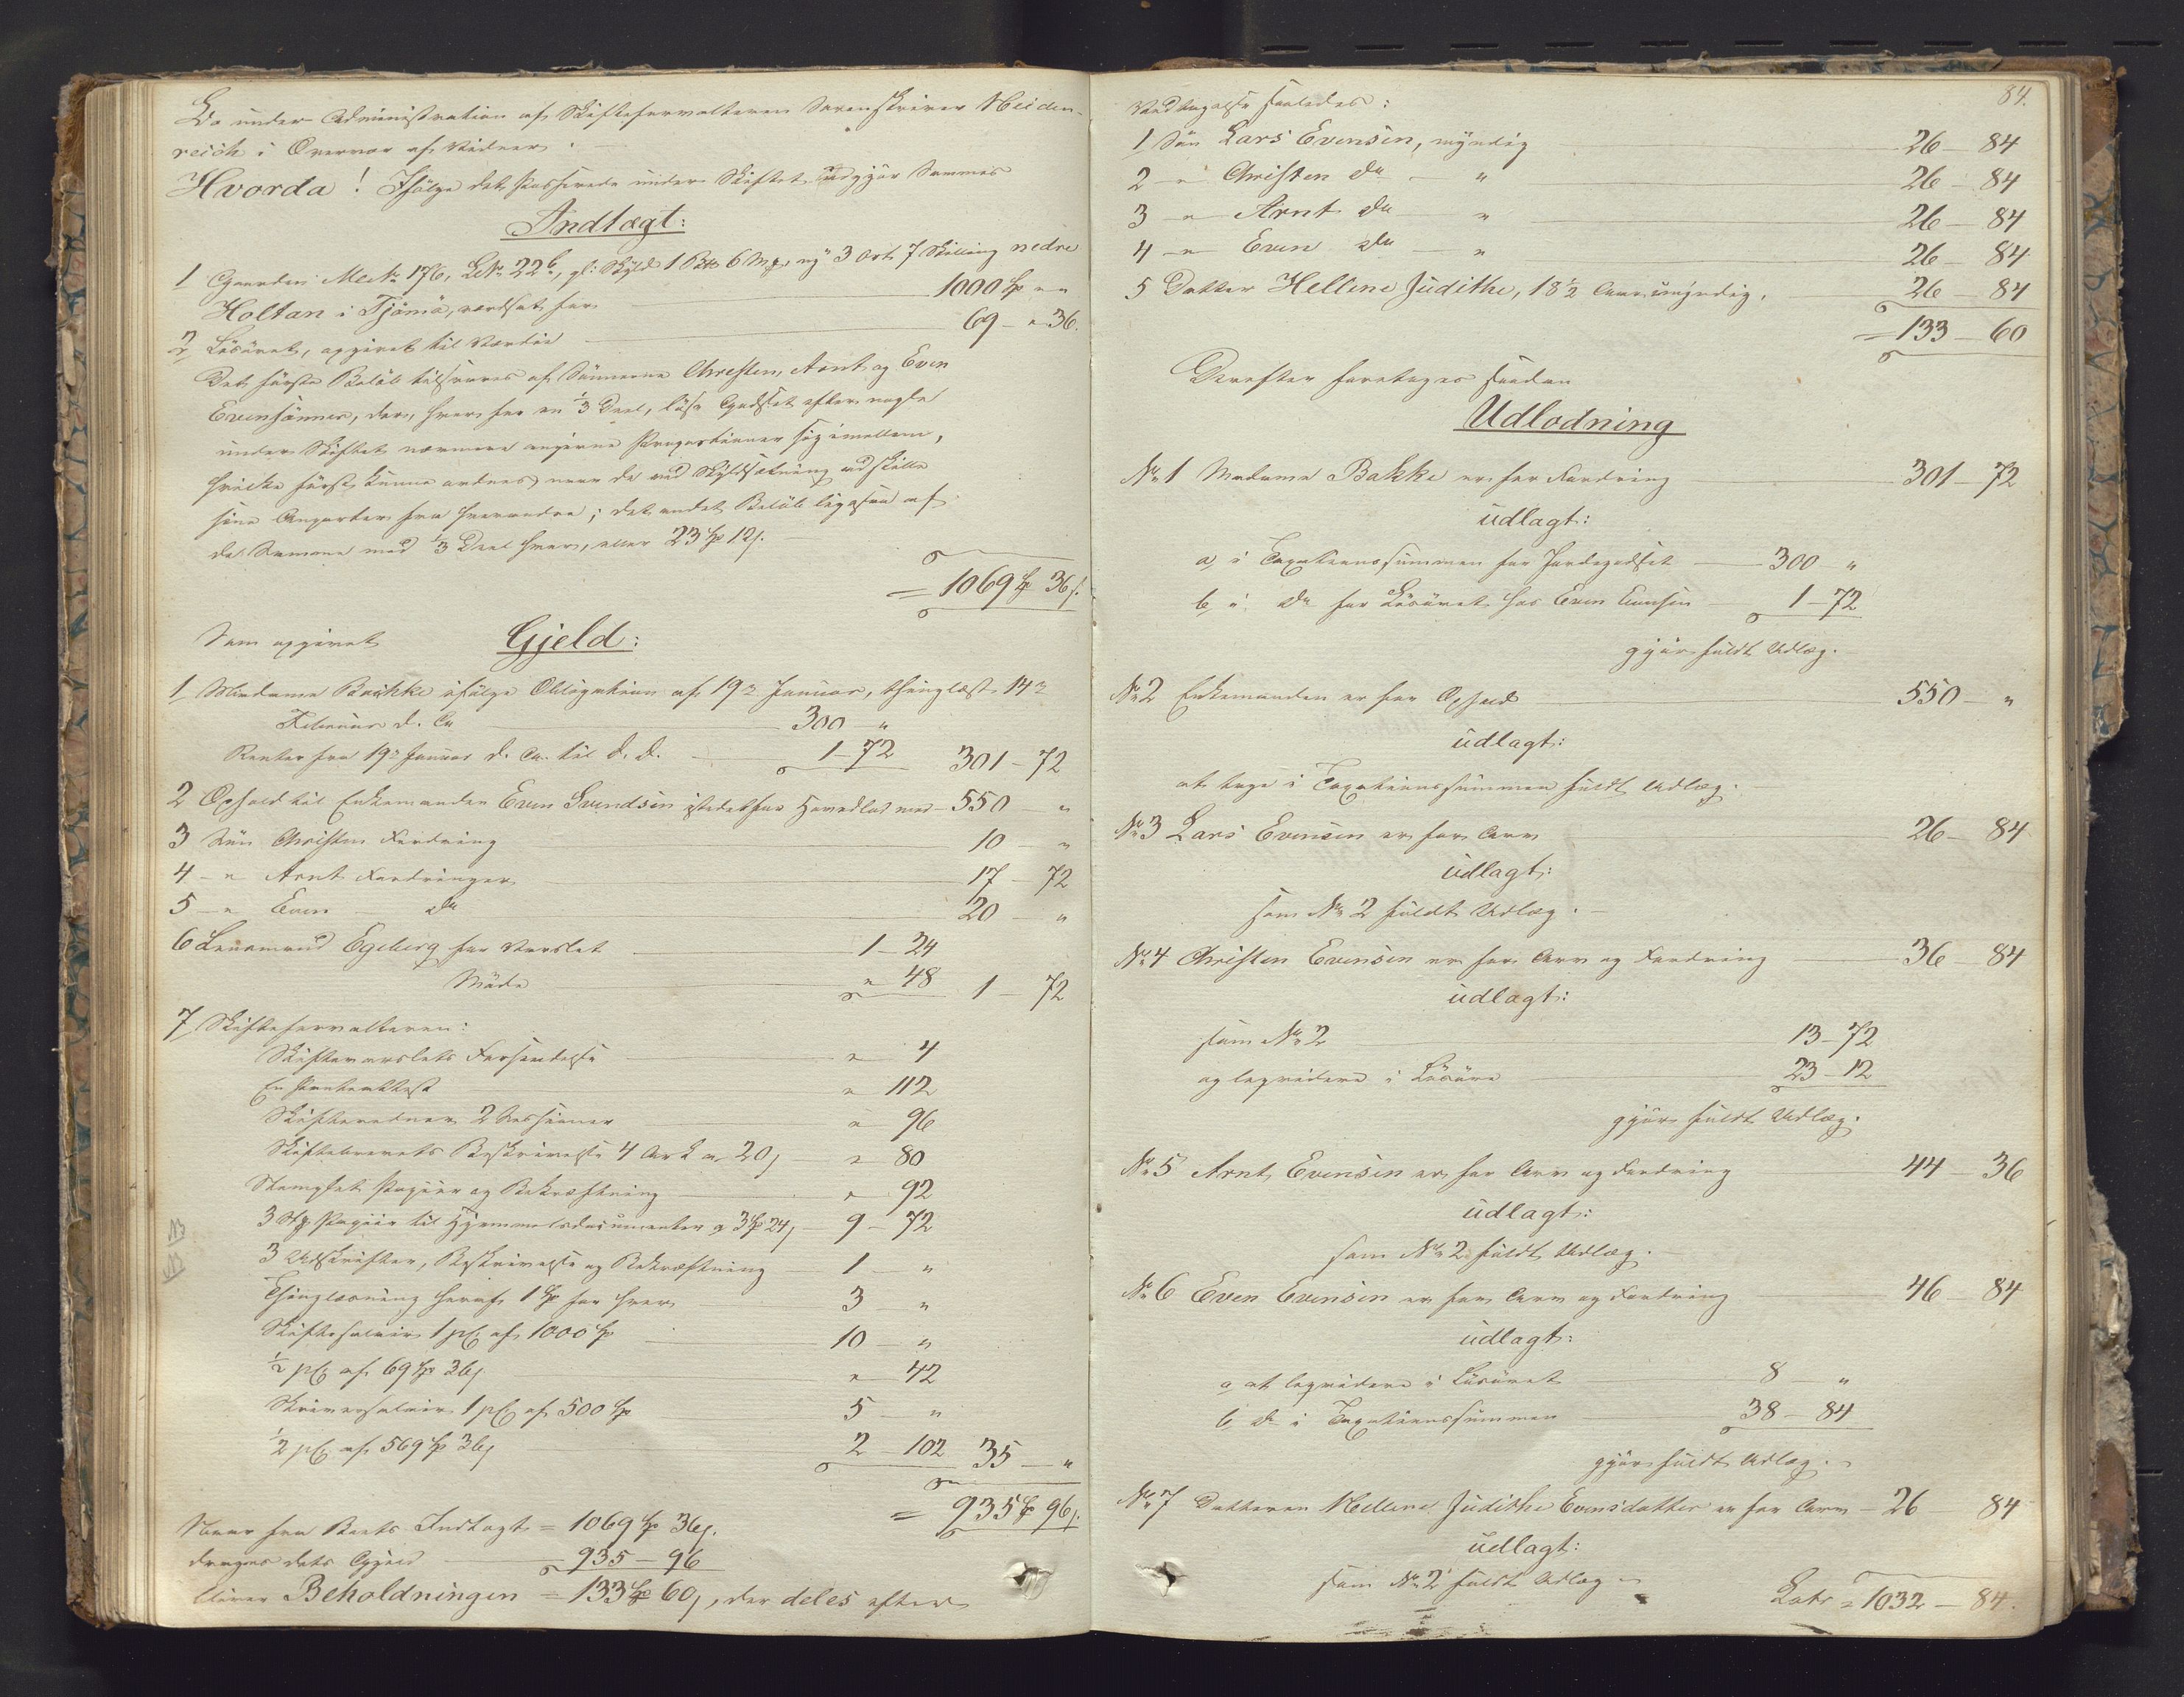 Da under Administration af Skifteforvalteren Sorenskriver Heiden-
reich i Overvær af Vidner.
Hvorda! Ifølge det passerede under Skiftet udgjør Sammes
Indtægt:
1 Gaarden Matr. № 176, L.№ 22b, gl: Skyld 1 Pd 6 Mk, ny 3 Ort 7 Skilling nedre
Holtan i Tjømø, værdsat for 1000 Sp " "
2, Løsøret, opgivet til Værdie 69 - " 36.
Det første Beløb tilsvares af Sønnerne Christen, Arnt og Even
Evensønner, der, hver for en 1/3 Deel, løse Godset efter nogle
under Skiftet nærmere angivne Proportioner sig imellem,
hvilke først kunne ordnes naar de ved Skyldsætning adskille
sine Anparter fra hverandre; det andet Beløb ligesaa af
de Samme med 1/3 Deel hver, eller 23 Sp 12 s.
= 1069 Sp 36 s.
Som opgivet Gjeld:
1 Madame Bakke ifølge Obligation af 19de Januar, thinglæst 14de
Februar d. Aa 300 - "
Renter fra 19de Januar d. Aa. til d. d. 1 - 72 301 - 72
2 Ophold til Enkemanden Even Svendsen istedetfor Hovedlod med 550 - "
3 Søn Christen Fordring 10 - "
4 - " Arnt Fordringer 17 - 72
5 - " Even do 20 - "
6 Lensmand Egeberg for Varslet 1 - 24
Møde " 48 1 - 72
7 Skifteforvalteren:
Skiftevarslets Forsendelse " 4
En Panteattest " 112
Skiftevidner 2 Sessioner " 96
Skiftebrevets Beskrivelse 4 Ark a 20 s " 80
Stemplet Papiir og Bekræftning " 92
3 St. Papiir til Hjemmelsdocumenter a 3 Sp 24 s 9 - 72
3 Udskrifter, Beskrivelse og Bekræftning 1 - "
Thinglæsning heraf 1 Sp for hver 3 - "
Skiftesalair 1 pC af 1000 Sp 10 - "
1/2 pC af 69 Sp 36 s " 42
Skriversalair 1 pC af 500 Sp 5 - "
1/2 pC af 569 Sp 36 s 2 - 102 35 - "
= 935 Sp 96 s.
Naar fra Boets Indtægt = 1069 Sp 36 s.
drages dets Gjeld 935 - 96
bliver Beholdningen = 133 Sp 60 s, der deles efter
84.
Vedtagelse saaledes:
1 Søn Lars Evensen, myndig 26 - 84
2 - " Christen do - " 26 - 84
3 - " Arnt do - " 26 - 84
4 - " Even do - " 26 - 84
5 Datter Hellene Judithe, 18 1/2 Aar, umyndig. 26 - 84
= 133 - 60
Derefter foretages saadan
Udlodning
№ 1 Madame Bakke er for Fordring 301 - 72
udlagt:
a, i Taxationssummen for Jordegodset 300 - "
b, i do for Løsøret hos Even Evensen 1 - 72
gjør fuldt Udlæg.
№ 2 Enkemanden er for Ophold 550 - "
udlagt:
at tage i Taxationssummen fuldt Udlæg.
№ 3 Lars Evensen er for Arv 26 - 84
udlagt:
som № 2 fuldt Udlæg.
№ 4 Christen Evensen er for Arv og Fordring 36 - 84
udlagt:
som № 2 13 - 72
og liqvidere i Løsøre 23 - 12
gjør fuldt Udlæg.
№ 5 Arnt Evensen er for Arv og Fordring 44 - 36
udlagt:
som № 2 fuldt Udlæg.
№ 6 Even Evensen er for Arv og Fordring 46 - 84
udlagt:
a at liqvidere i Løsøret 8 - "
b, do i Taxationssummen 38 - 84
gjør fuldt Udlæg.
№ 7 Datteren Hellene Judithe Evensdatter er for Arv - 26 84
udlagt:
som № 2 fuldt Udlæg
Lats = 1032 - 84.